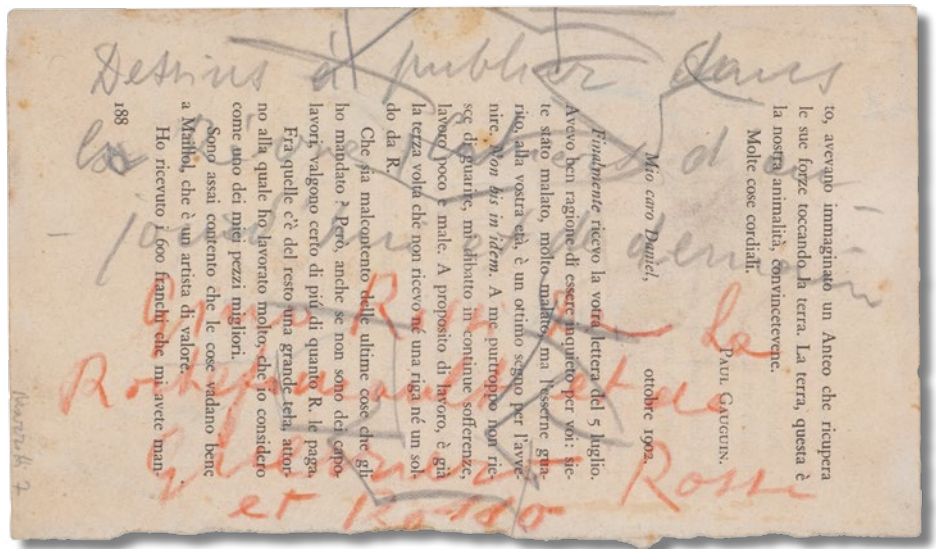 Dessins à publier dans
d'au-
jourd'hui et de demain
La
et de
Rossi
et Rosso
to, avevano immaginato un Anteo che ricupera
le sue forze toccando la terra. La terra, questa è
la nostra animalità, convincetevene.
Molte cose cordiali.
PAUL GAUGUIN.
ottobre 1902.
Mio caro Daniel,
Finalmente ricevo la votra lettera del 5 luglio.
Avevo ben ragione di essere inquieto per voi: sie-
te stato malato, molto malato, ma l'esserne gua-
rito, alla vostra età, è un ottimo segno per l'avve-
nire. Non bis in idem. A me purtroppo non rie-
sce di guarire, mi dibatto in continue sofferenze,
lavoro poco e male. A proposito di lavoro, è già
la terza volta che non ricevo né una riga né un sol-
do da R.
Che sia malcontento delle ultime cose che gli
ho mandato? Però, anche se non sono dei capo-
lavori, valgono certo di piú di quanto R. le paga.
Fra quelle c'è del resto una grande tela, attor-
no alla quale ho lavorato molto, che io considero
come uno dei miei pezzi migliori.
Sono assai contento che le cose vadano bene
a Maillol, che è un artista di valore.
Ho ricevuto i 600 franchi che mi avete man-
188